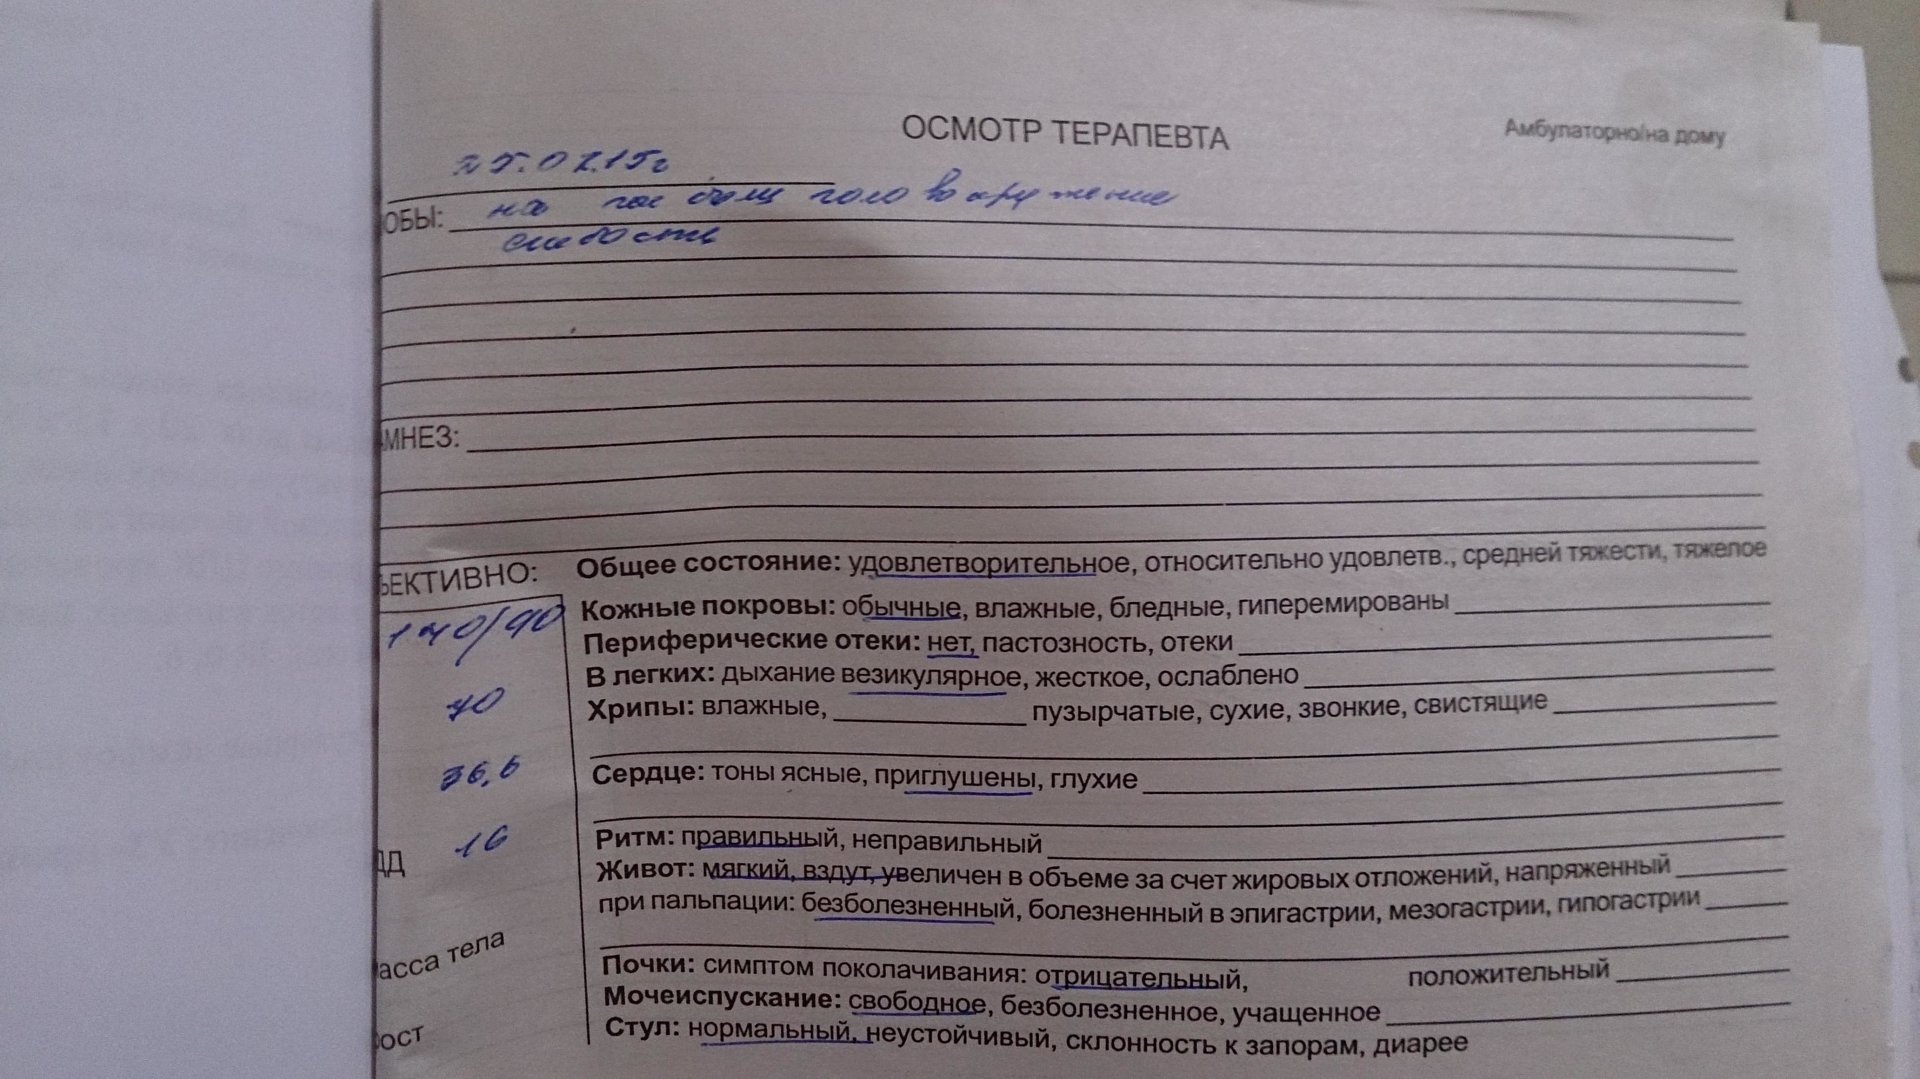 ОСМОТР ТЕРАПЕВТА
Амбулаторно/на дому
25.02.15г
ОБЫ: на головокружение
слабость
МНЕЗ:
ЪЕКТИВНО:
Общее состояние: удовлетворительное, относительно удовлетв., средней тяжести, тяжелое
140/90
Кожные покровы: обычные, влажные, бледные, гиперемированы
Периферические отеки: нет, пастозность, отеки
В легких: дыхание везикулярное, жесткое, ослаблено
70
Хрипы: влажные, пузырчатые, сухие, звонкие, свистящие
36,6
Сердце: тоны ясные, приглушены, глухие
ДД 16
Ритм: правильный, неправильный
Живот: мягкий, вздут, увеличен в объеме за счет жировых отложений, напряженный
при пальпации: безболезненный, болезненный в эпигастрии, мезогастрии, гипогастрии
асса тела
Почки: симптом поколачивания: отрицательный, положительный
Мочеиспускание: свободное, безболезненное, учащенное
ост
Стул: нормальный, неустойчивый, склонность к запорам, диарее